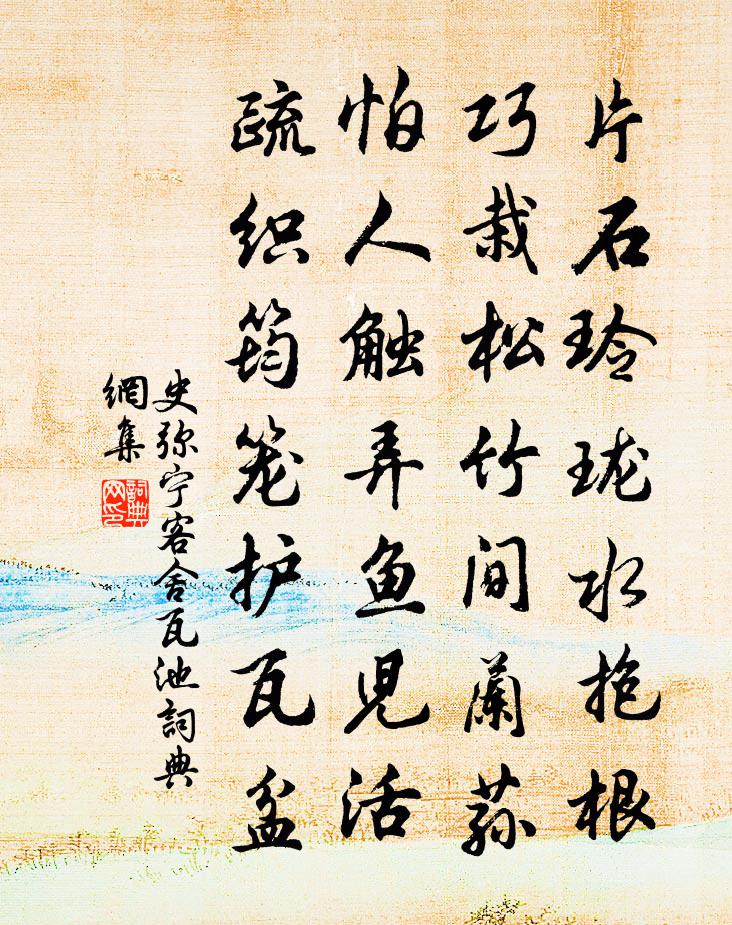 片石玲珑水抱根
巧栽松竹间蘭荪
怕人触弄鱼児活
疏织筠笼护瓦盆
史弥宁客舍瓦池詞典
網集
詞典
网印